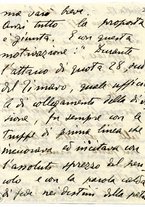 ma sarò breve.
anzi tutto la proposta
è giunta, con questa
motivazione: "Durante
l'attacco di quota 28, sud
del Timavo, quale ufficia
di collegamento della di
sione fu sempre con
truppe di prima linea che
incuorava ed incitava con
l'assoluto sprezzo del peri
colo e con la parola calda
di fede nei destini della patria